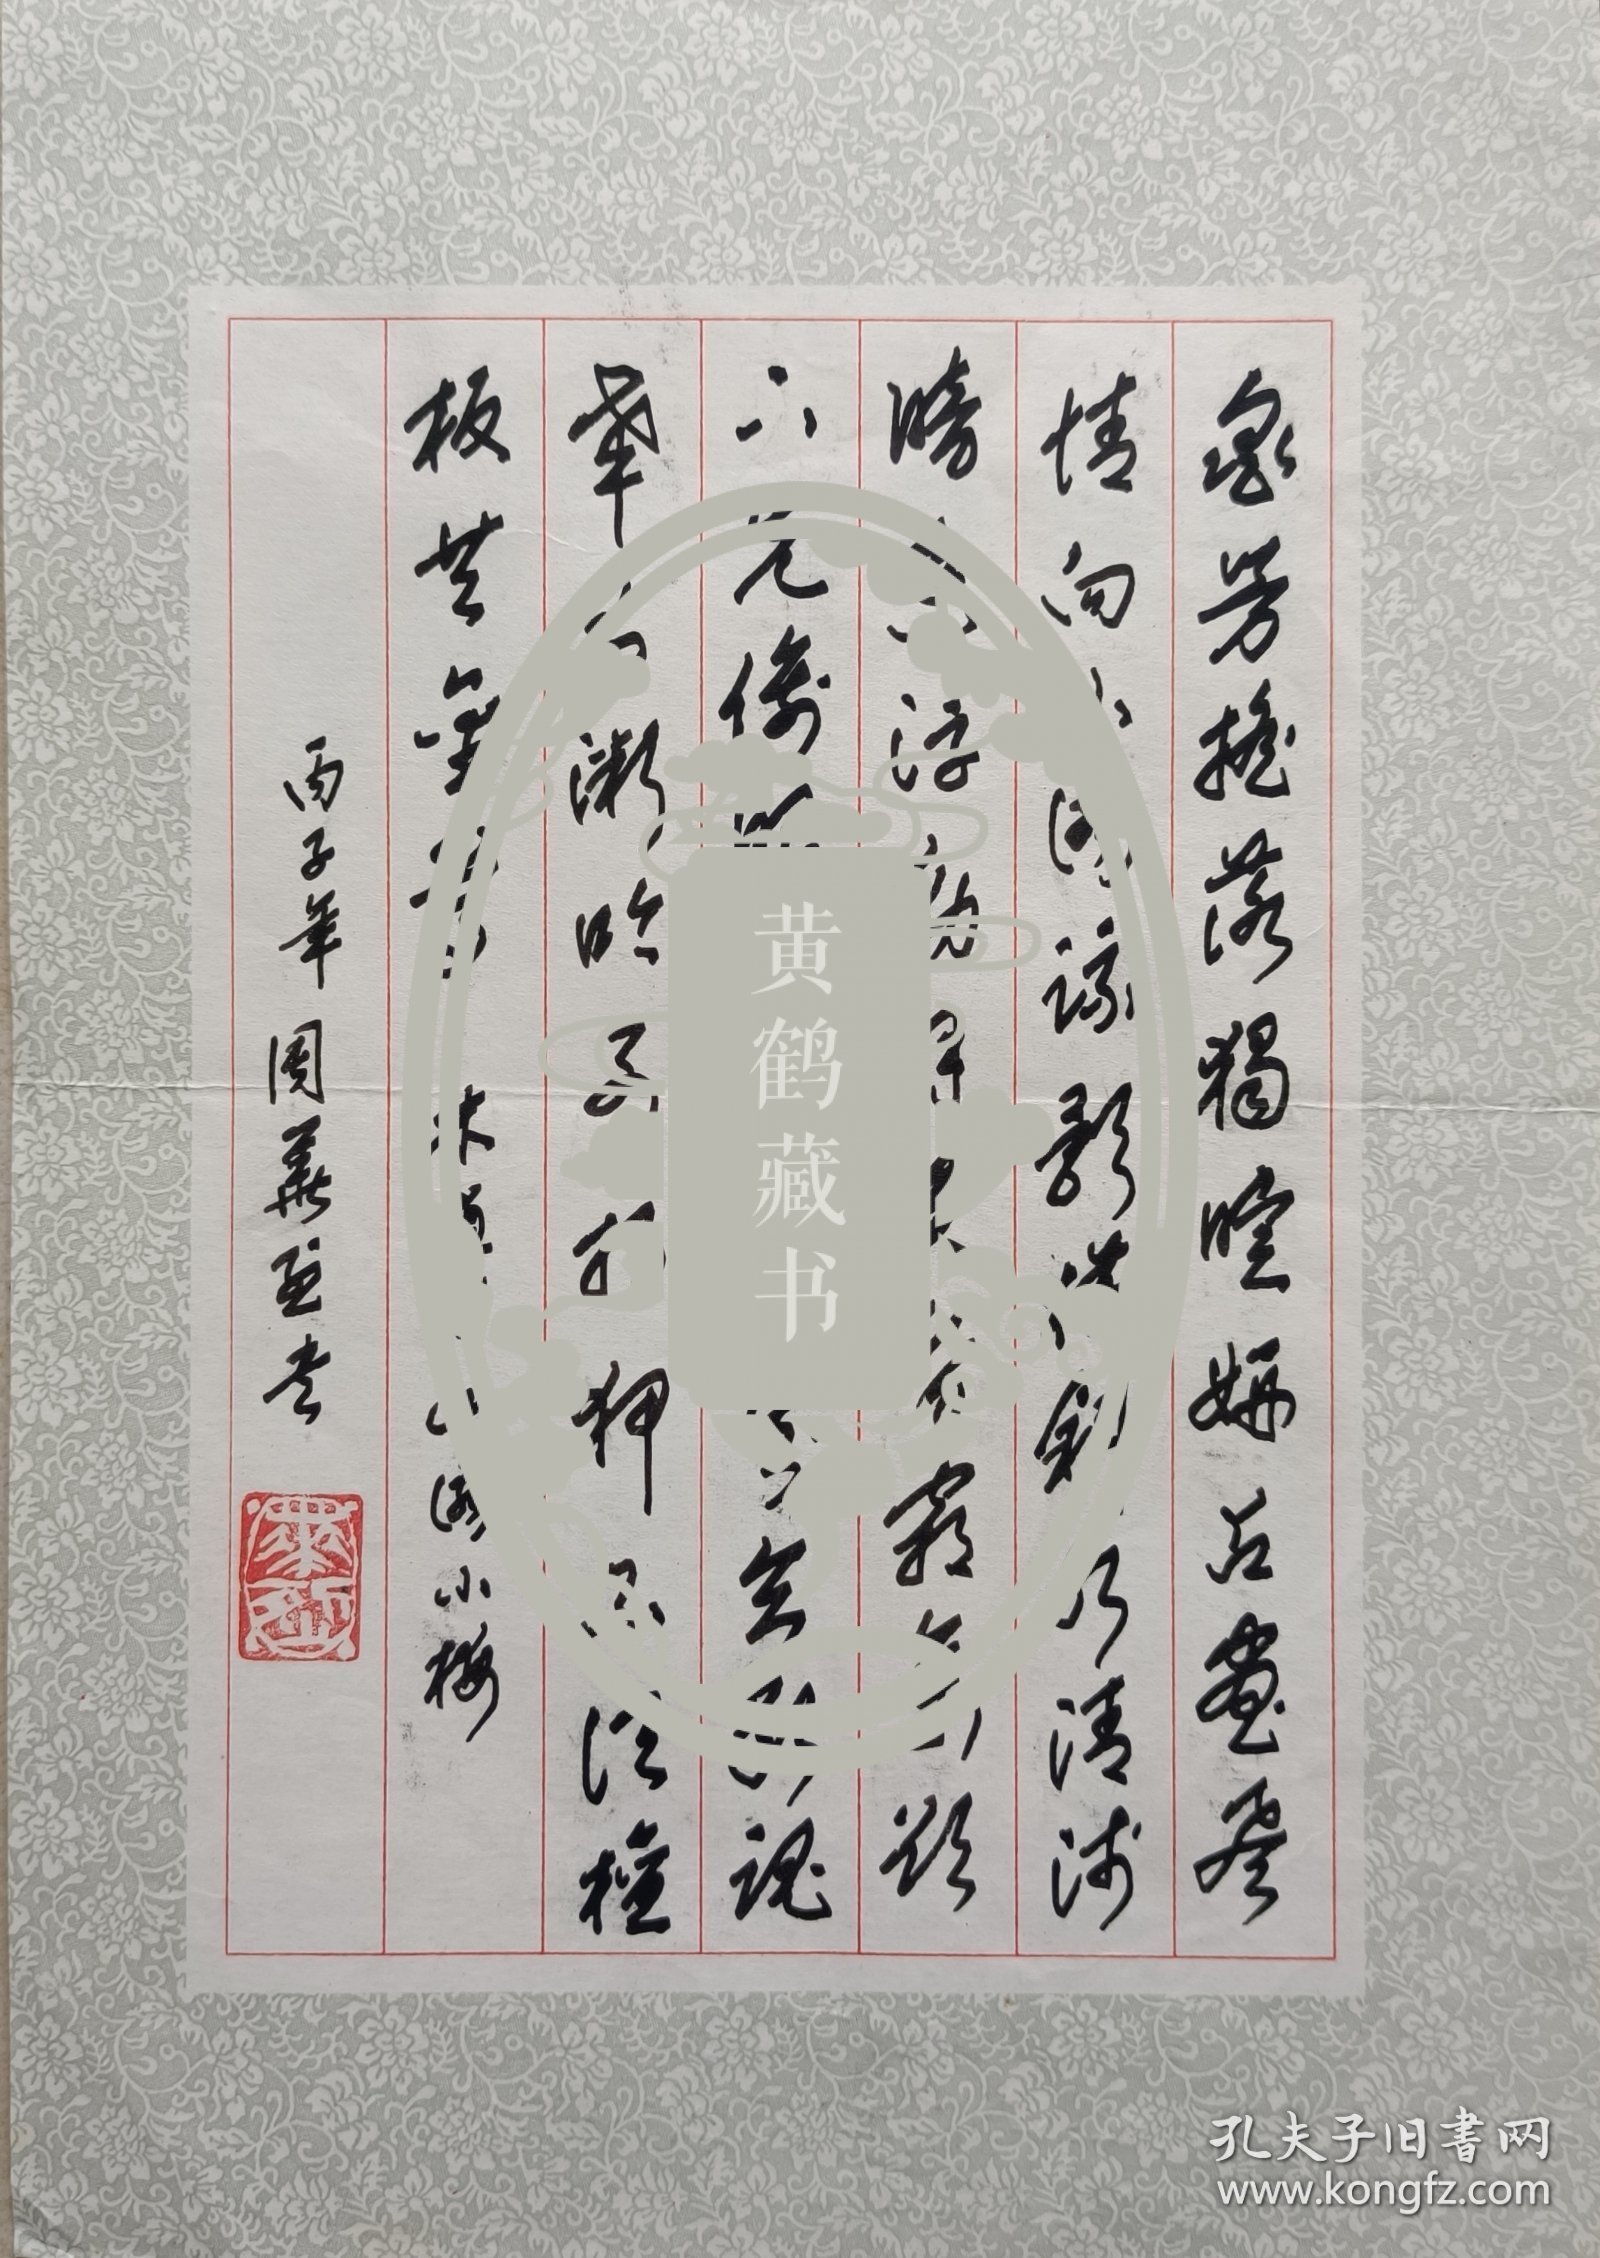 眾芳摇落獨暄妍占盡風
情向小園疎影横斜水清淺
暗香浮動月黄昏霜禽欲
下先偷眼合斷魂
幸有微吟可相狎不須檀
板共金尊 林逋山園小梅
丙子年 周華亚书
黄鹤藏书
孔夫子旧书网
www.kongfz.com